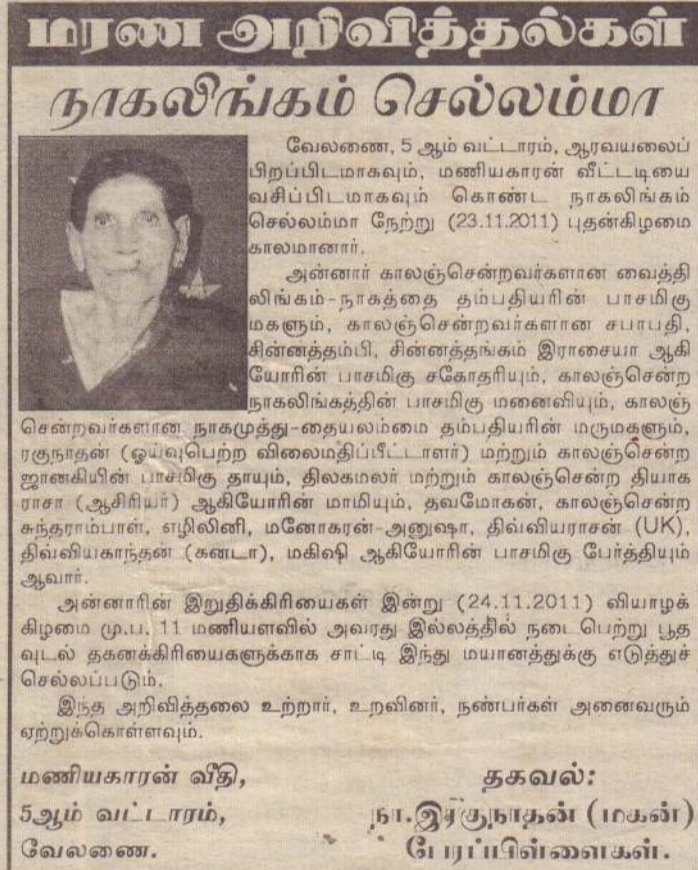 மரண அறிவித்தல்கள்
நாகலிங்கம் செல்லம்மா
வேலணை, 5 ஆம் வட்டாரம், ஆரவயலைப்
பிறப்பிடமாகவும், மணியகாரன் வீட்டடியை
வசிப்பிடமாகவும் கொண்ட நாகலிங்கம்
செல்லம்மா நேற்று (23.11.2011) புதன்கிழமை
காலமானார்.
அன்னார் காலஞ்சென்றவர்களான வைத்தி
லிங்கம்-நாகத்தை தம்பதியரின் பாசமிகு
மகளும், காலஞ்சென்றவர்களான சபாபதி,
சின்னத்தம்பி, சின்னத்தங்கம் இராசையா ஆகி
யோரின் பாசமிகு சகோதரியும், காலஞ்சென்ற
நாகலிங்கத்தின் பாசமிகு மனைவியும், காலஞ்
சென்றவர்களான நாகமுத்து-தையலம்மை தம்பதியரின் மருமகளும்,
ரகுநாதன் (ஓய்வுபெற்ற விலைமதிப்பீட்டாளர்) மற்றும் காலஞ்சென்ற
ஜானகியின் பாசமிகு தாயும், திலகமலர் மற்றும் காலஞ்சென்ற தியாக
ராசா (ஆசிரியர்) ஆகியோரின் மாமியும், தவமோகன், காலஞ்சென்ற
சுந்தராம்பாள், எழிலினி, மனோகரன்-அனுஷா, திவ்வியராசன் (UK),
திவ்வியகாந்தன் (கனடா), மகிஷி ஆகியோரின் பாசமிகு பேர்த்தியும்
ஆவார்.
அன்னாரின் இறுதிக்கிரியைகள் இன்று (24.11.2011) வியாழக்
கிழமை மு.ப. 11 மணியளவில் அவரது இல்லத்தில் நடைபெற்று பூத
வுடல் தகனக்கிரியைகளுக்காக சாட்டி இந்து மயானத்துக்கு எடுத்துச்
செல்லப்படும்.
இந்த அறிவித்தலை உற்றார், உறவினர், நண்பர்கள் அனைவரும்
ஏற்றுக்கொள்ளவும்.
மணியகாரன் வீதி,
5ஆம் வட்டாரம்,
வேலணை.
தகவல்:
நா.இரகுநாதன் (மகன்)
பேரப்பிள்ளைகள்.